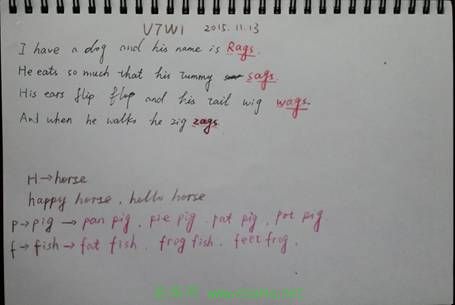 V7W1 2015.11.13
I have a dog and his name is Rags.
He eats so much that his tummy sags.
His ears flip flop and his tail wig wags.
And when he walks he zig zags.
H→horse
happy horse, hello horse
P→pig → pan pig, pie pig, pat pig, pot pig
f→fish→fat fish, frog fish, feet frog,